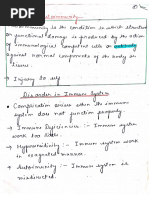 Autoimmunity
Autoimmunity is the condition in which structural
or functional damage is produced by the action
of immunological competent cells or antibody
against normal components of the body or
tissues.
→ Injury to self
Disorder in Immune System
• Complication arises when the immune
system does not function properly.
→ Immune Deficiencies :- Immune system
work too less.
→ Hypersensitivity :- Immune system work
in exaggerated manner.
→ Autoimmunity :- Immune system is
misdirected.